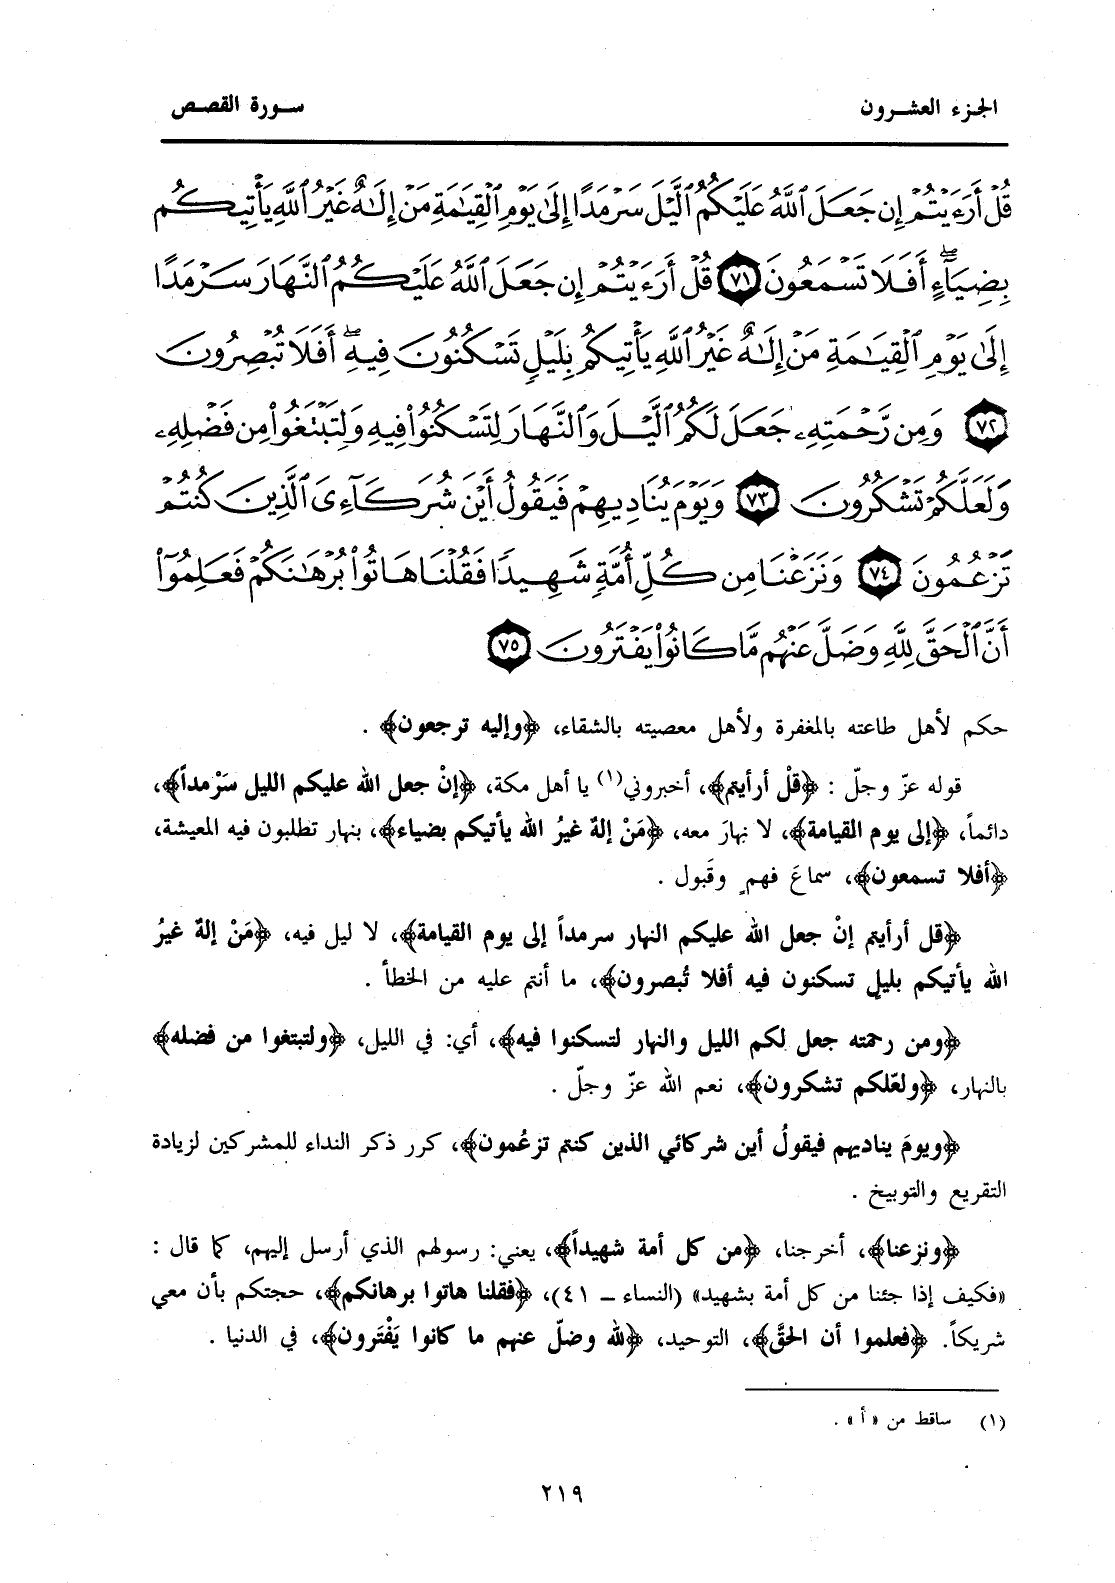 الجزء العشرون
سورة القصص
قُلْ أَرَءَيْتُمْ إِن جَعَلَ ٱللَّهُ عَلَيْكُمُ ٱلَّيْلَ سَرْمَدًا إِلَىٰ يَوْمِ ٱلْقِيَٰمَةِ مَنْ إِلَٰهٌ غَيْرُ ٱللَّهِ يَأْتِيكُم
بِضِيَآءٍ ۖ أَفَلَا تَسْمَعُونَ ٧١ قُلْ أَرَءَيْتُمْ إِن جَعَلَ ٱللَّهُ عَلَيْكُمُ ٱلنَّهَارَ سَرْمَدًا
إِلَىٰ يَوْمِ ٱلْقِيَٰمَةِ مَنْ إِلَٰهٌ غَيْرُ ٱللَّهِ يَأْتِيكُم بِلَيْلٍ تَسْكُنُونَ فِيهِ ۖ أَفَلَا تُبْصِرُونَ
٧٢ وَمِن رَّحْمَتِهِۦ جَعَلَ لَكُمُ ٱلَّيْلَ وَٱلنَّهَارَ لِتَسْكُنُوا۟ فِيهِ وَلِتَبْتَغُوا۟ مِن فَضْلِهِۦ
وَلَعَلَّكُمْ تَشْكُرُونَ ٧٣ وَيَوْمَ يُنَادِيهِمْ فَيَقُولُ أَيْنَ شُرَكَآءِىَ ٱلَّذِينَ كُنتُمْ
تَزْعُمُونَ ٧٤ وَنَزَعْنَا مِن كُلِّ أُمَّةٍ شَهِيدًا فَقُلْنَا هَاتُوا۟ بُرْهَٰنَكُمْ فَعَلِمُوٓا۟
أَنَّ ٱلْحَقَّ لِلَّهِ وَضَلَّ عَنْهُم مَّا كَانُوا۟ يَفْتَرُونَ ٧٥
حكم لأهل طاعته بالمغفرة ولأهل معصيته بالشقاء، ﴿وإليه ترجعون﴾ .
قوله عزّ وجلّ : ﴿قلْ أرأيتم﴾، أخبروني(١) يا أهل مكة، ﴿إنْ جعل الله عليكم الليل سَرْمداً﴾،
دائماً، ﴿إلى يوم القيامة﴾، لا نهارَ معه، ﴿مَنْ إلهٌ غيرُ الله يأتيكم بضياء﴾، بنهار تطلبون فيه المعيشة،
﴿أفلا تسمعون﴾، سماعَ فهمٍ وقَبول .
﴿قل أرأيتم إنْ جعل الله عليكم النهار سرمداً إلى يوم القيامة﴾، لا ليل فيه، ﴿مَنْ إلهٌ غيرُ
الله يأتيكم بليلٍ تسكنون فيه أفلا تُبصرون﴾، ما أنتم عليه من الخطأ .
﴿ومن رحمته جعل لكم الليل والنهار لتسكنوا فيه﴾، أي: في الليل، ﴿ولتبتغوا من فضله﴾
بالنهار، ﴿ولعلّكم تشكرون﴾، نعم الله عزّ وجلّ .
﴿ويومَ يناديهم فيقولُ أين شركائي الذين كنتم تزعُمون﴾، كرر ذكر النداء للمشركين لزيادة
التقريع والتوبيخ .
﴿ونزعنا﴾، أخرجنا، ﴿من كل أمة شهيداً﴾، يعني: رسولهم الذي أرسل إليهم، كما قال :
«فكيف إذا جئنا من كل أمة بشهيد» (النساء ــ ٤١)، ﴿فقلنا هاتوا برهانكم﴾، حجتكم بأن معي
شريكاً. ﴿فعلموا أن الحقَّ﴾، التوحيد، ﴿لله وضلّ عنهم ما كانوا يَفْتَرون﴾، في الدنيا .
(١) ساقط من «أ» .
٢١٩